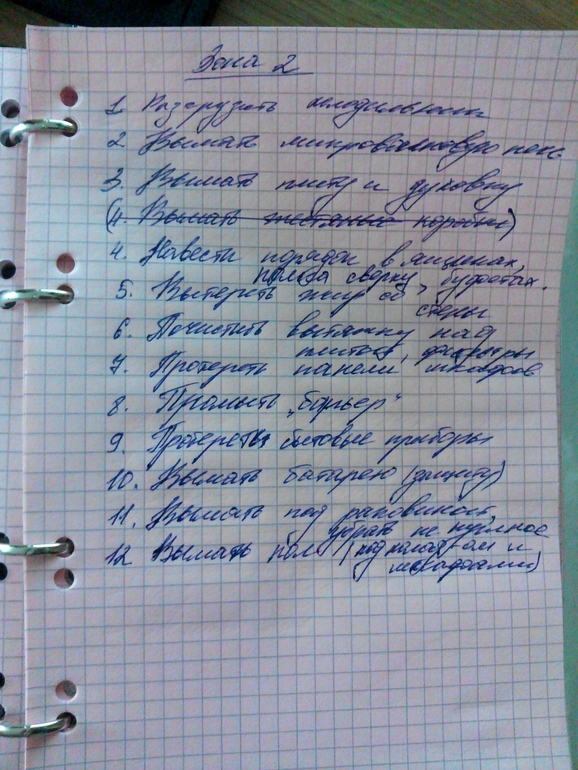 Зона 2
1. Разгрузить холодильник
2. Вымыть микроволновую печь
3. Вымыть плиту и духовку
(4. Вымыть жестяные коробки)
4. Навести порядок в ящиках,
полка сверху, буфетах.
5. Вытереть жир со стены
6. Почистить вытяжку над
плитой, фильтры
7. Протереть панели шкафов
8. Промыть „барьер"
9. Протереть бытовые приборы
10. Вымыть батарею (защиту)
11. Вымыть под раковиной,
убрать не нужное
12 Вымыть пол (под и
шкафами)